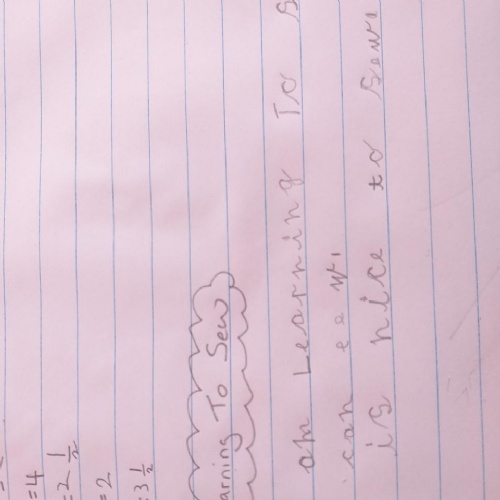 =4
=2 1/2
=2
=3 1/2
arning To Sew
am Learning To s
can eew.
is nice to sew.